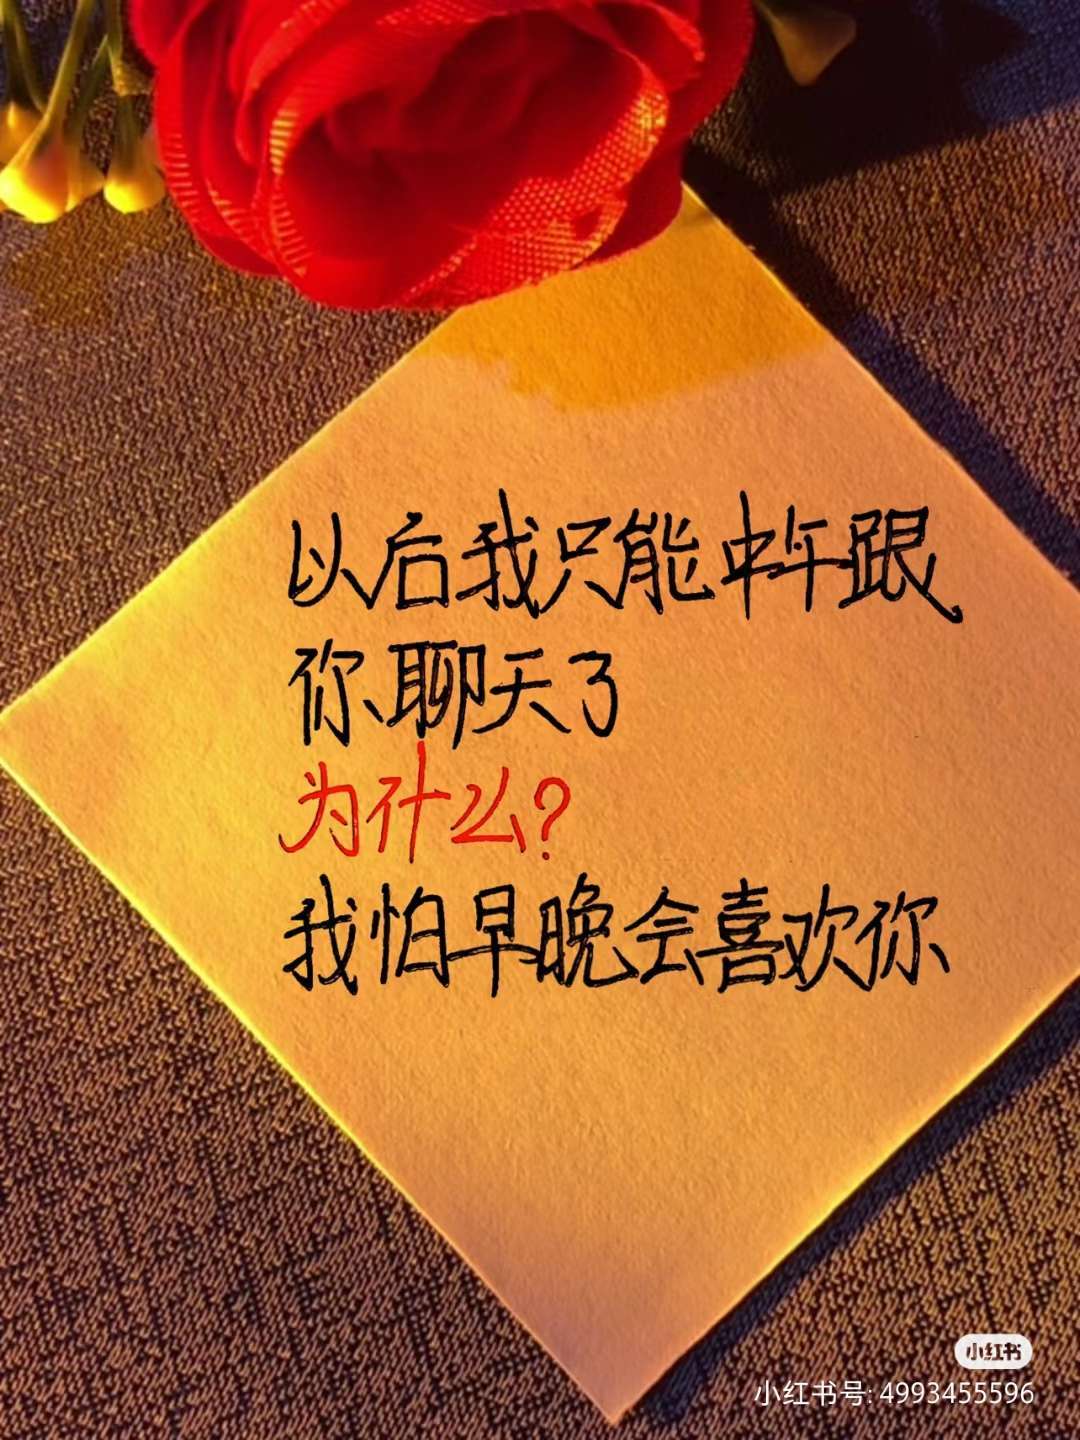 以后我只能中午跟
你聊天了
为什么?
我怕早晚会喜欢你
小红书
小红书号: 4993455596